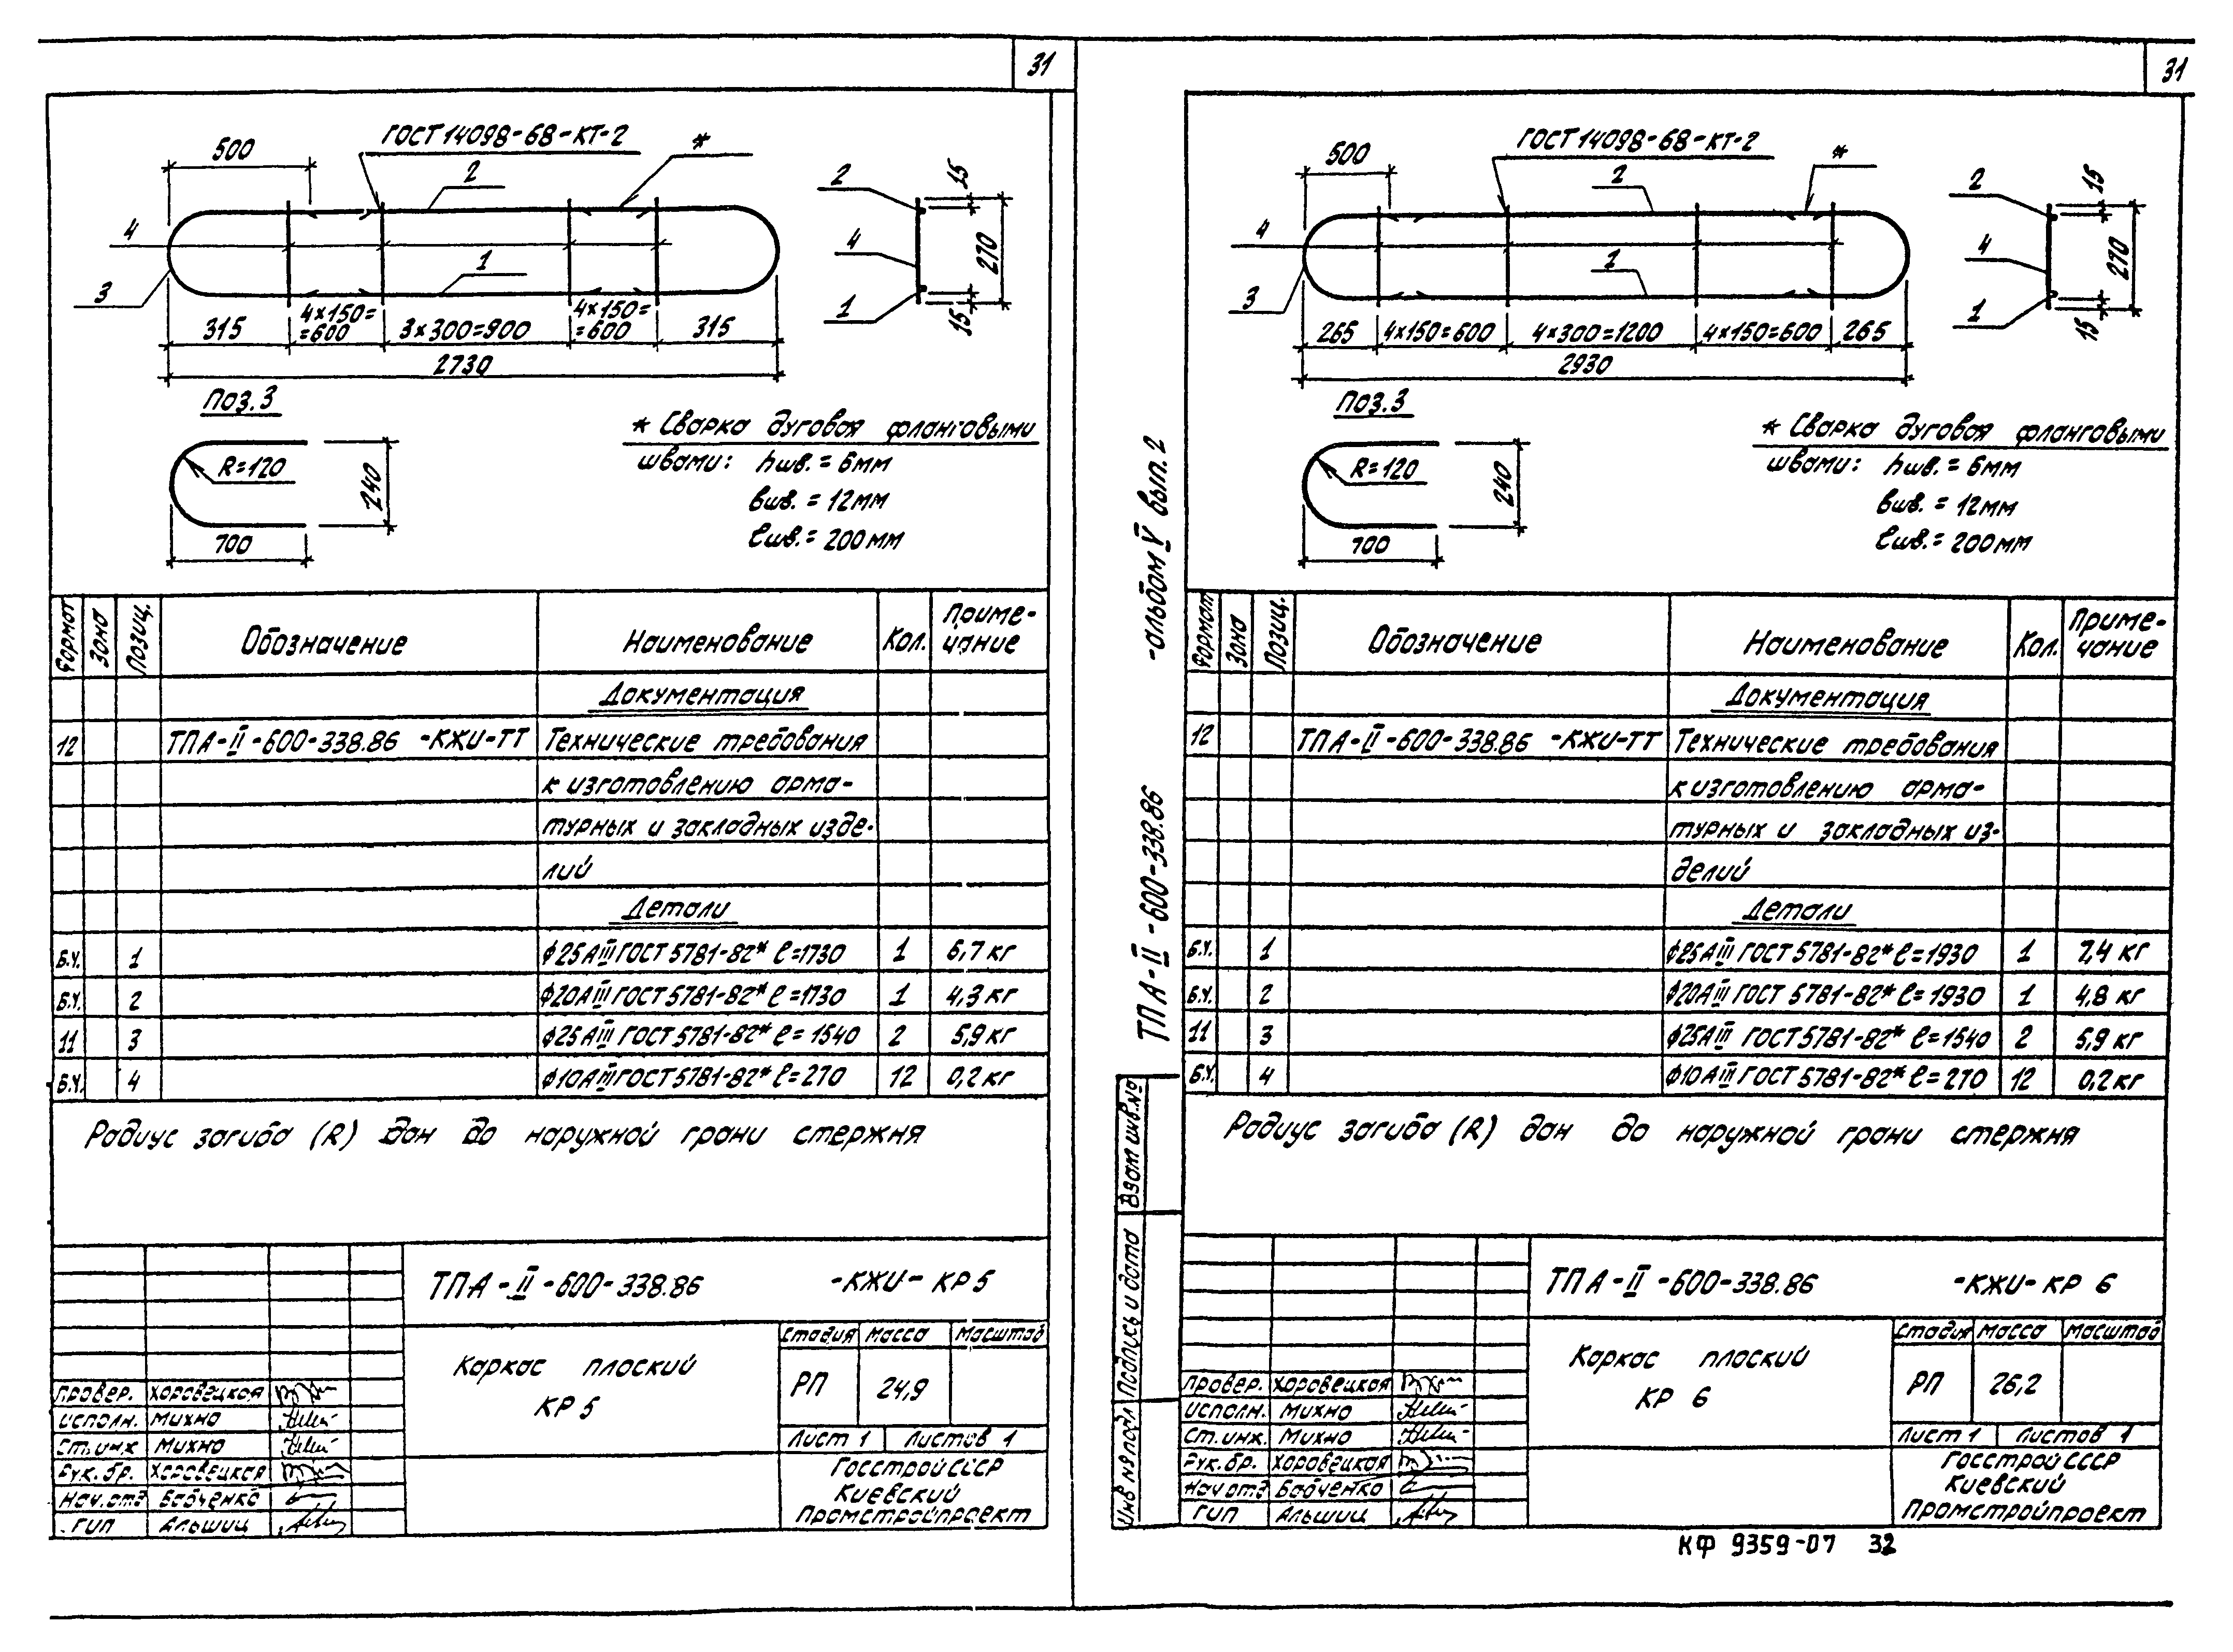 31
500
ГОСТ 14098-68-КТ-2
*
2
4
1
3
315
4×150=
=600
3×300=900
4×150=
=600
315
2730
2
4
1
15
270
15
Поз.3
R=120
240
700
* Сварка дуговая фланговыми
швами: hшв. = 6мм
вшв. = 12мм
ℓшв. = 200мм
Формат Зона Позиц. Обозначение Наименование Кол. Приме-
чание
Документация
12 ТПА-II-600-338.86 -КЖИ-ТТ Технические требования
к изготовлению арма-
турных и закладных изде-
лий
Детали
Б.Ч. 1 ф25АIII ГОСТ 5781-82* ℓ=1730 1 6,7 кг
Б.Ч. 2 ф20АIII ГОСТ 5781-82* ℓ=1730 1 4,3 кг
11 3 ф25АIII ГОСТ 5781-82* ℓ=1540 2 5,9 кг
Б.Ч. 4 ф10АIII ГОСТ 5781-82* ℓ=270 12 0,2 кг
Радиус загиба (R) дан до наружной грани стержня
ТПА-II-600-338.86 -КЖИ-КР 5
Каркас плоский
КР 5
Стадия Масса Масштаб
РП 24,9
Лист 1 Листов 1
Госстрой СССР
Киевский
Промстройпроект
Провер. Хоровецкая
Исполн. Михно
Ст.инж Михно
Рук.бр. Хоровецкая
Нач.отд Бабченко
ГИП Альшиц
31
500
ГОСТ 14098-68-КТ-2
*
2
4
1
3
265
4×150=600
4×300=1200
4×150=600
265
2930
2
4
1
15
270
15
Поз.3
R=120
240
700
* Сварка дуговая фланговыми
швами: hшв. = 6мм
вшв. = 12мм
ℓшв. = 200мм
Формат Зона Позиц. Обозначение Наименование Кол. Приме-
чание
Документация
12 ТПА-II-600-338.86 -КЖИ-ТТ Технические требования
к изготовлению арма-
турных и закладных из-
делий
Детали
Б.Ч. 1 ф25АIII ГОСТ 5781-82* ℓ=1930 1 7,4 кг
Б.Ч. 2 ф20АIII ГОСТ 5781-82* ℓ=1930 1 4,8 кг
11 3 ф25АIII ГОСТ 5781-82* ℓ=1540 2 5,9 кг
Б.Ч. 4 ф10АIII ГОСТ 5781-82* ℓ=270 12 0,2 кг
Радиус загиба (R) дан до наружной грани стержня
ТПА-II-600-338.86 -КЖИ-КР 6
Каркас плоский
КР 6
Стадия Масса Масштаб
РП 26,2
Лист 1 Листов 1
Госстрой СССР
Киевский
Промстройпроект
Провер. Хоровецкая
Исполн. Михно
Ст.инж. Михно
Рук.бр. Хоровецкая
Нач.отд Бабченко
ГИП Альшиц
ТПА-II-600-338.86 -альбом V вып. 2
Взам инв.№
Подпись и дата
Инв №подл
КФ 9359-07 32